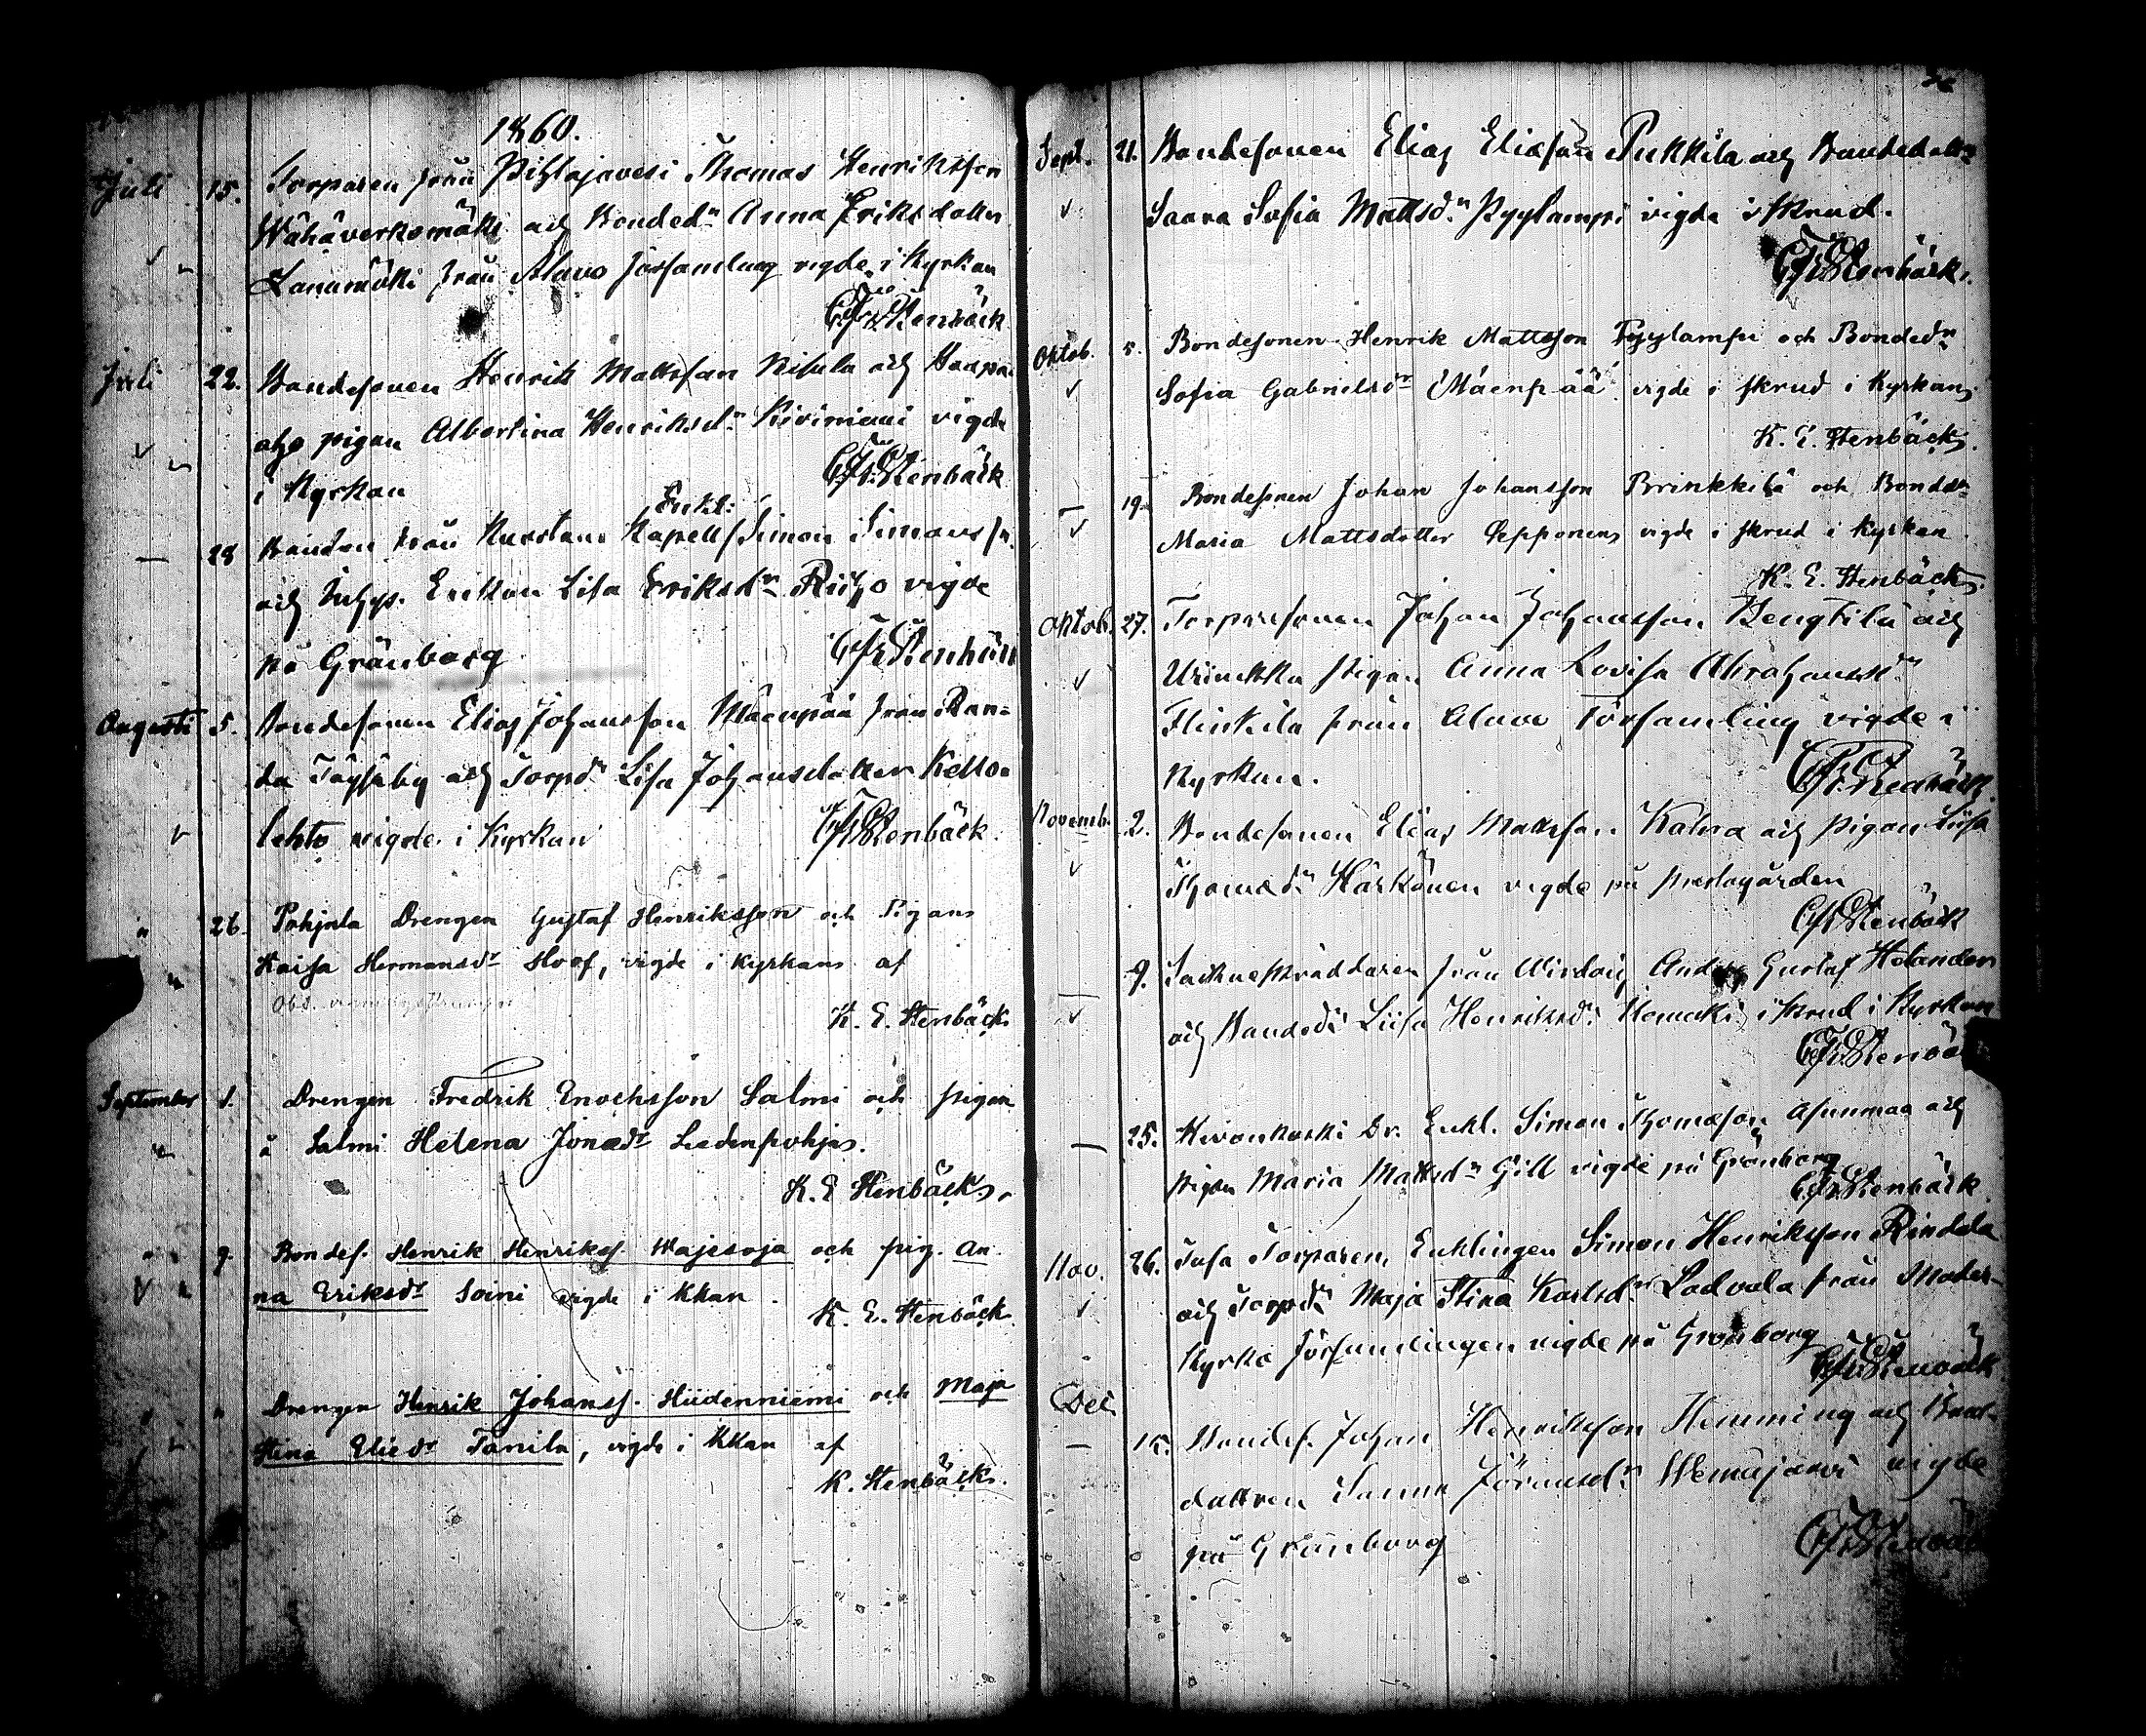 1860.
Juli 15. Torparen från Pihlajavesi Thomas Henriksson
Wähäverksmäki och Bonded:n Anna Eriksdotter
Lanamäki från Alavo församling vigde i Kyrkan
C. Fr. Stenbäck
Juli 22. Bondesonen Henrik Mattsson Nisula och
pigan Albertina Henriksd:r Kiviniemi vigde
i Kyrkan
C. Fr. Stenbäck
Enkl:
— 28 Bonden från Kuortane Kapell Simon Simonss:n
och Inhys. Enkan Lisa Eriksd:r Riiho vigde
på Gränborg
C. Fr. Stenbäck
Augusti 5. Bondesonen Elias Johansson Mäenpää från Ran=
da Töysäby och Torpd:r Lisa Johansdotter Kello=
lehto vigde i Kyrkan
C. Fr. Stenbäck
" 26. Pohjola Drengen Gustaf Henriksson och Pigan
Kaisa Hermansd:r Hoof, vigde i kyrkan af
Obs.
K. E. Stenbäck
September 1. Drengen Fredrik Enochsson Salmi och pigan
å Salmi Helena Jonasd:r Ledenpohja.
K. E. Stenbäck.
" 9. Bondes. Henrik Henrikss. Wajesoja och pig. An-
na Eriksd:r Soini vigde i Kkan.
K. E. Stenbäck
" " Drengen Henrik Johanss. Hiidenniemi och Maja
Stina Elied:r Tanila, vigde i Kkan af
K. Stenbäck.
Sept. 21. Bondesonen Elias Eliasson Pukkila och Bondedotter
Saara Sofia Mattsd:r Pyylampi vigde i skrud.
C. Fr. Stenbäck.
Oktob. 5. Bondesonen Henrik Mattsson Pyylampi och Bonded:n
Sofia Gabrielsd:r Mäenpää vigde i skrud i Kyrkan.
K. E. Stenbäck.
— 19. Bondesonen Johan Johansson Brinkkilä och Bonded:n
Maria Mattsdotter Lepponen vigde i skrud i Kyrkan
K. E. Stenbäck.
Oktob. 27. Torparesonen Johan Johansson Bengtilä och
pigan Anna Lovisa Abrahamsd:r
Flinkila från Alavo Församling vigde i
Kyrkan.
C. Fr. Stenbäck
Novemb. 2. Bondesonen Elias Mattsson Katva och pigan Liisa
Thomasd:r Härkönen vigde på prestagården
C. Fr. Stenbäck
— 9. Socknesträddaren från Wirdois Anders Gustaf Helander
och Bonded:r Liisa Henriksd:r i skrud i Kyrkan
C. Fr. Stenbäck
— 25. Dr. Enkl. Simon Thomasson Asunmaa och
pigan Maria Mattsd:r Gill vigde på Grönborg
C. Fr. Stenbäck
Nov. 26. Torparen, Enklingen Simon Henriksson Rindala
och Torpd:r Maja Stina Karlsd:r Ladvala från Moder-
kyrko församlingen vigde på Gronborg
C. Fr. Stenbäck
Dec. — 15. Bondes. Johan Henriksson Hemming och Bond-
dottren Sanna vigde
på Gränborg
C. Fr. Stenbäck